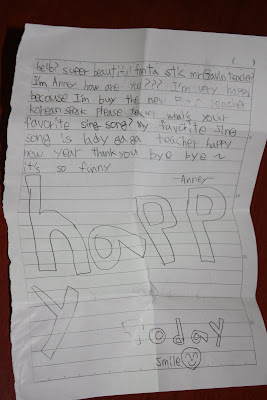 hello? super beautiful fanta stic mr Gavin teacher
I'm Anney how are you??? I'm very happy
because I'm buy the new teacher
korean speak please what's your
favorite song? my favorite sing
song is lady gaga teacher happy
new year thank you bye bye ~
it's so funny
-Anney-
happ
y
Today
smile